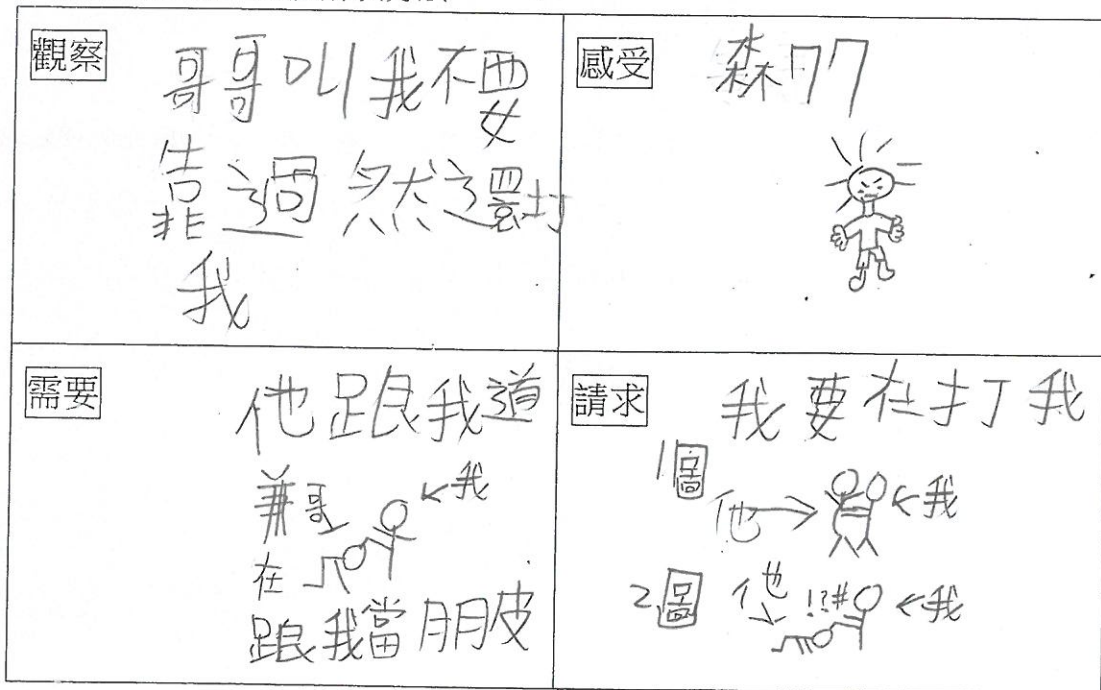 觀察
哥哥叫我不要
靠過然還打
我
感受
森77
需要
他跟我道
兼哥
←我
在
跟我當朋皮
請求
我要在打我
1圖
他→ ←我
2圖 他 !?# ←我